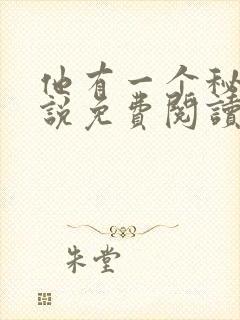 他有一个秘
说免费阅读
朱堂